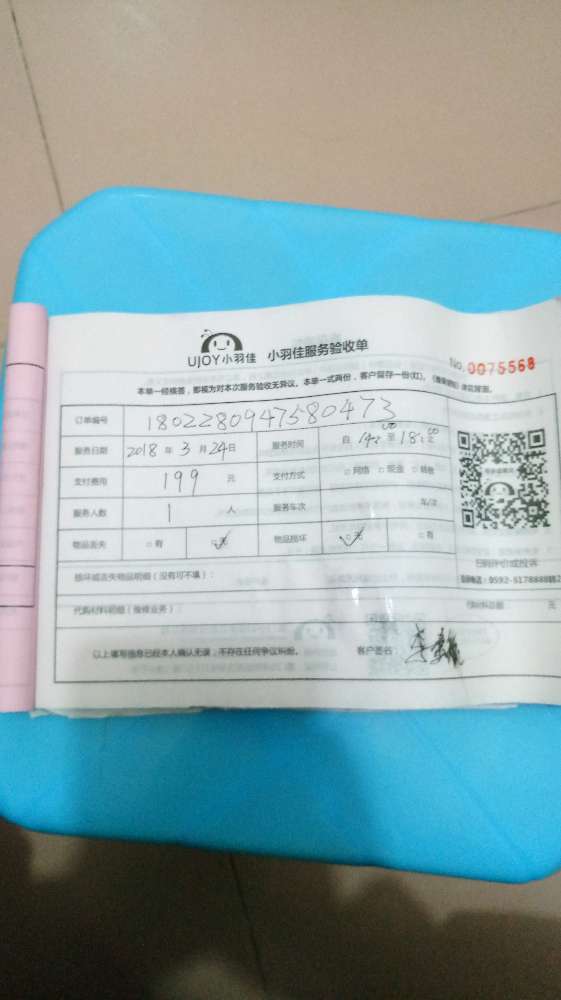 UJOY小羽佳 小羽佳服务验收单
No.0075568
本单一经签署，即视为对本次服务验收无异议。本单一式两份，客户留存一份(红)。
订单编号 1802280947580473
服务日期 2018 年 3 月 24 日 服务时间 自 14:00 至 18:00
支付费用 199 元 支付方式 □网络 □现金 □销售
服务人数 1 人 服务车次 车/次
物品丢失 □有 ☑无 物品损坏 ☑无 □有
扫码评价或投诉
损坏或丢失物品明细（没有可不填）：
代购材料明细（维修业务）： 代材料总额： 元
以上填写信息已经本人确认无误，不存在任何争议纠纷。 客户签名：